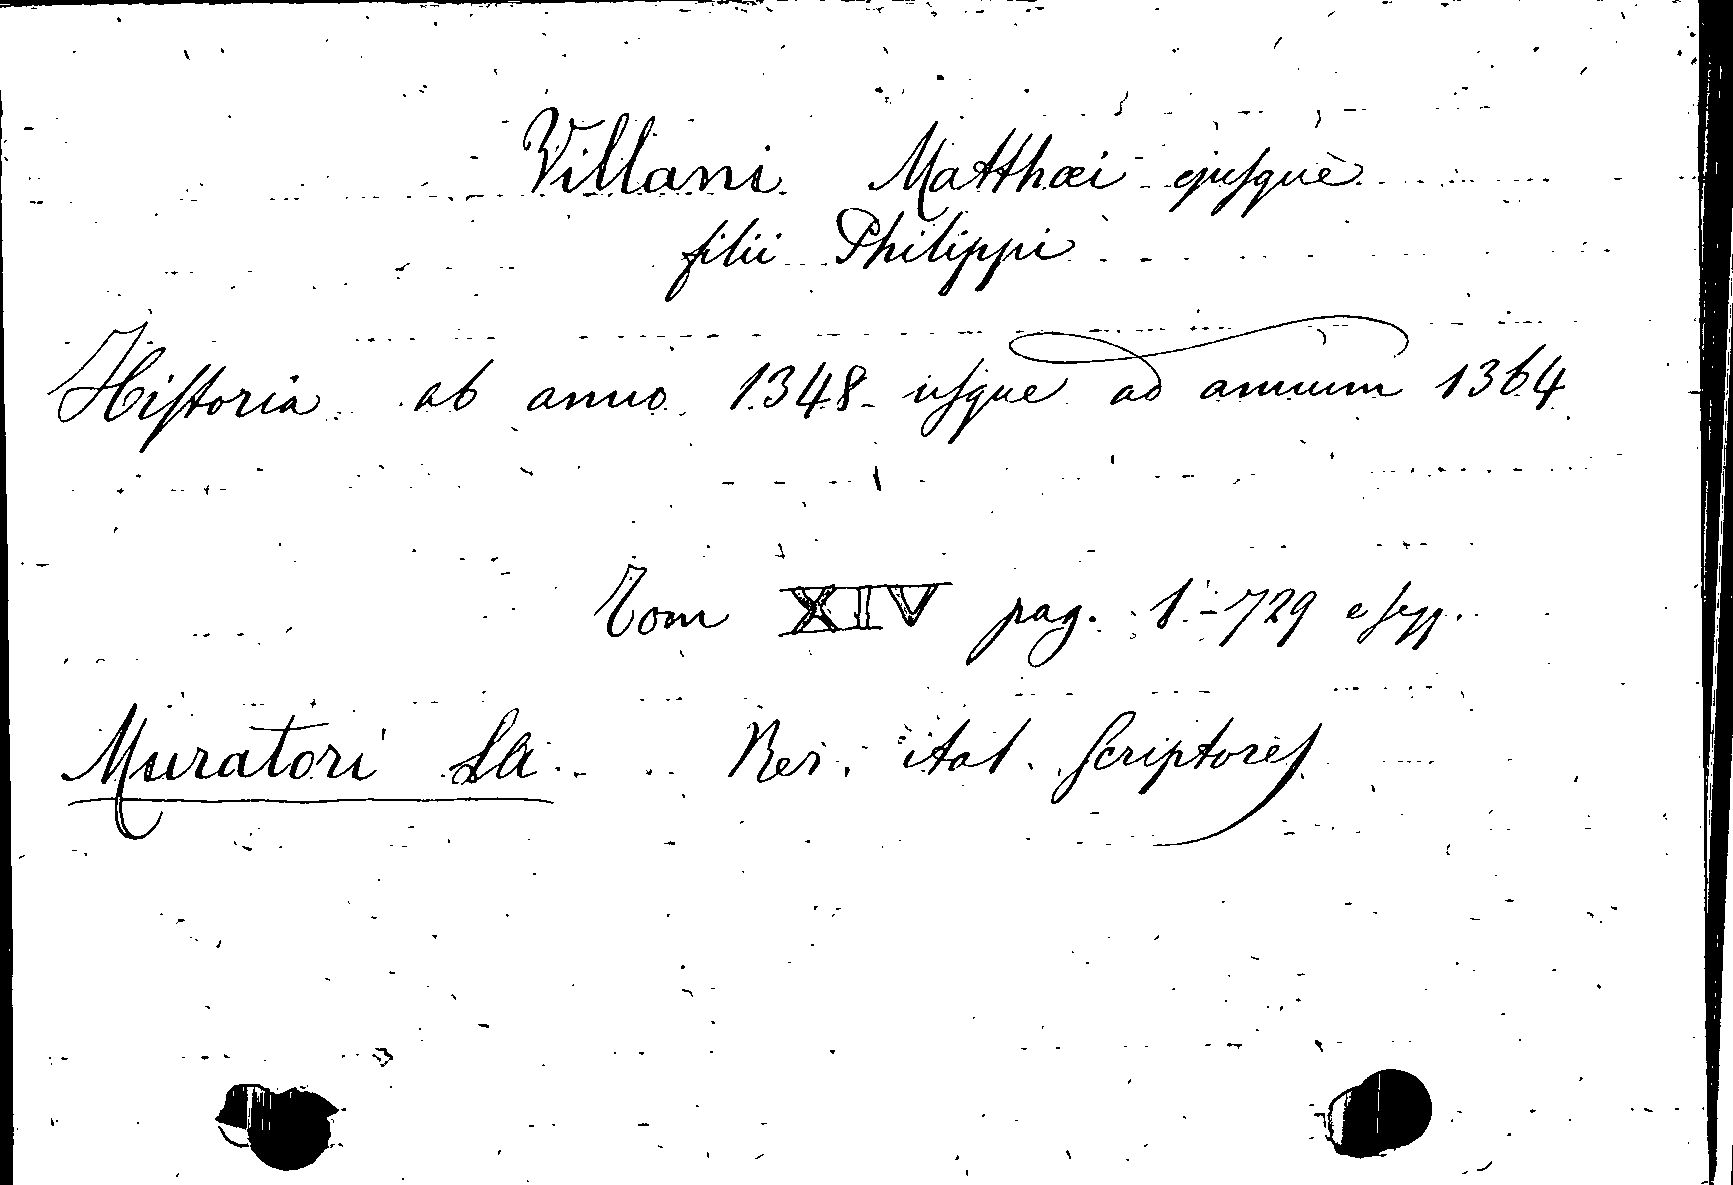 Villani Matthæi ejusque
filii Philippi
Historia ab anno 1348 usque ad annum 1364
Tom XIV pag. 1-729 e segg.
Muratori LA. Rer. ital. Scriptores